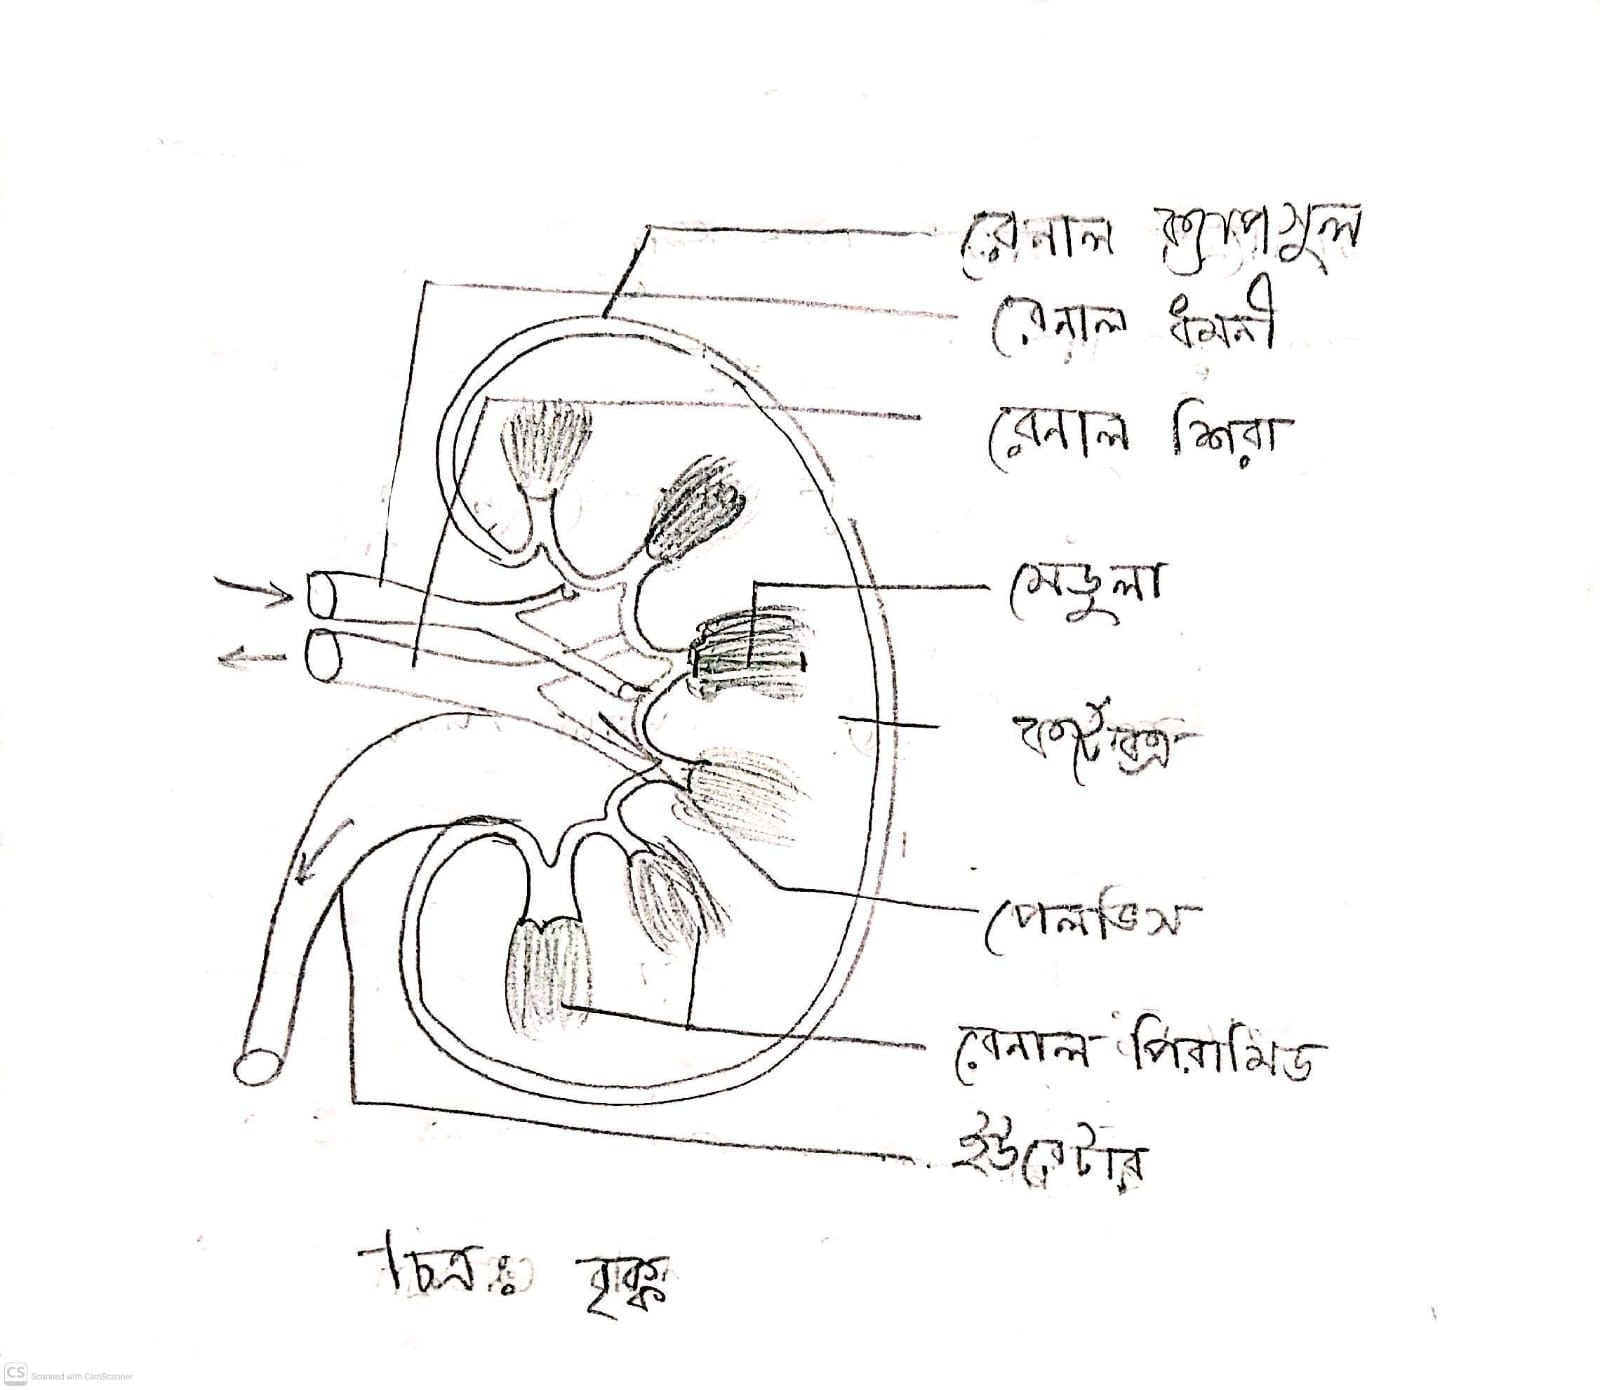 রেনাল ক্যাপসুল
রেনাল ধমনী
রেনাল শিরা
মেডুলা
কর্টেক্স
পেলভিস
রেনাল পিরামিড
ইউরেটার
চিত্র: বৃক্ক
CS Scanned with CamScanner